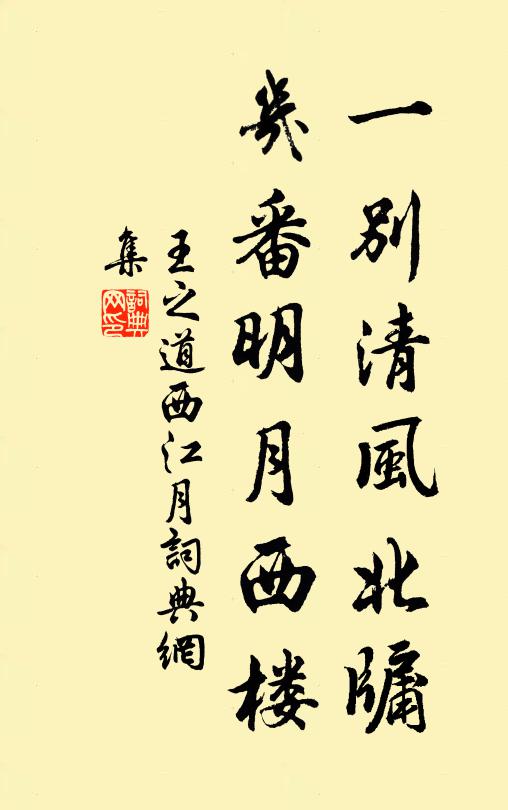 一别清風北牖
幾番明月西楼
王之道西江月詞典網
集
詞典
网印